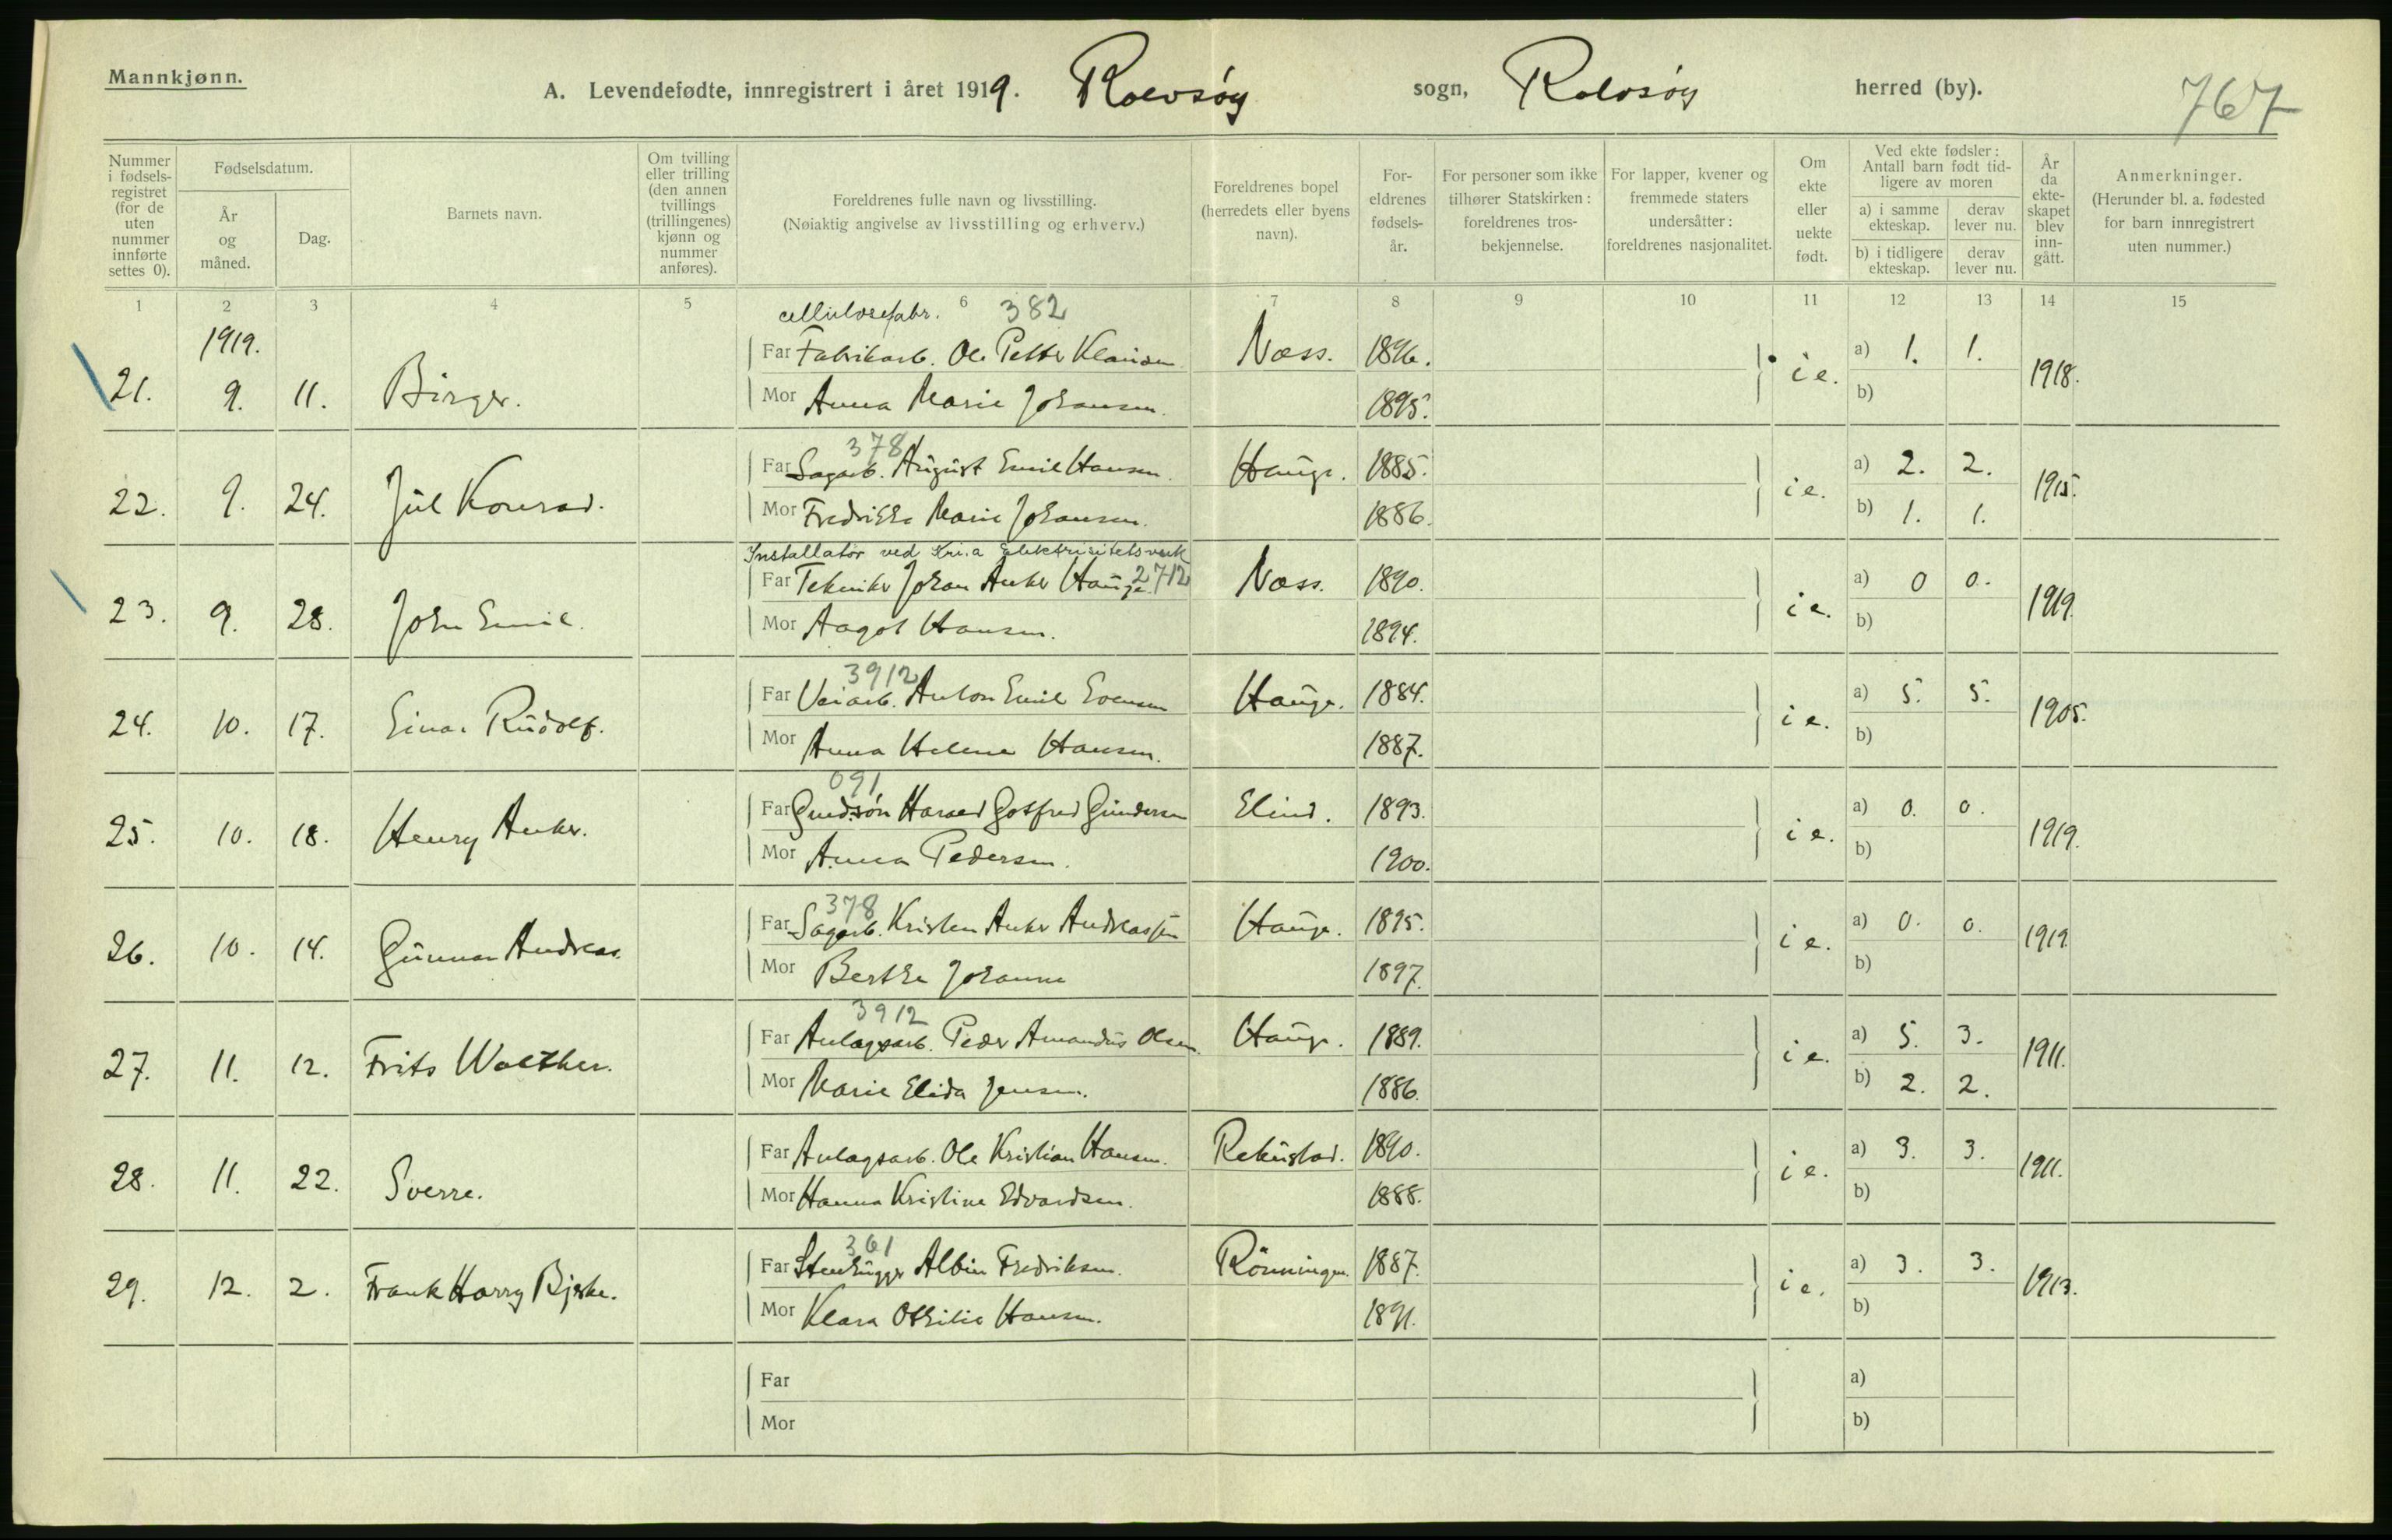 Mannkjønn.
A. Levendefødte, innregistrert i året 1919. Rolvsøy sogn, Rolvsøy herred (by). 767
Nummer i fødsels-registret (for de uten nummer innførte settes 0).
Fødselsdatum.
År og måned.
Dag.
Barnets navn.
Om tvilling eller trilling (den annen tvillings (trillingenes) kjønn og nummer anføres).
Foreldrenes fulle navn og livsstilling.
(Nøiaktig angivelse av livsstilling og erhverv.)
Foreldrenes bopel (herredets eller byens navn).
For-eldrenes fødsels-år.
For personer som ikke tilhører Statskirken: foreldrenes tros-bekjennelse.
For lapper, kvener og fremmede staters undersåtter: foreldrenes nasjonalitet.
Om ekte eller uekte født.
Ved ekte fødsler: Antall barn født tid-ligere av moren
a) i samme ekteskap.
derav lever nu.
b) i tidligere ekteskap.
derav lever nu.
År da ekte-skapet blev inn-gått.
Anmerkninger.
(Herunder bl. a. fødested for barn innregistrert uten nummer.)
1 2 3 4 5 6 7 8 9 10 11 12 13 14 15
cellulosefabr. 382
1919.
Far Fabrikarb. Ole Petter Klausen Næss. 1896. a) 1. 1.
21. 9. 11. Birger. i e. 1918.
Mor Anna Marie Johansen. 1895. b)
378
Far Sagarb. August Emil Hansen. Hauge. 1885. a) 2. 2.
22. 9. 24. Jul Konrad. i e. 1915.
Mor Fredrikke Marie Johansen. 1886. b) 1. 1.
Installatør ved Kri.a Elektrisitetsverk
Far Tekniker Johan Anker Hauge. 2712 Næss. 1890. a) 0 0.
23. 9. 28. John Emil. i e. 1919.
Mor Aagot Hansen. 1894. b)
3912
Far Veiarb. Anton Emil Evensen Hauge. 1884. a) 5. 5.
24. 10. 17. Einar Rudolf. i e. 1905.
Mor Anna Helene Hansen. 1887. b)
091
Far Grudsøn Harald Gotfred Gundersen Elind. 1893. a) 0. 0.
25. 10. 18. Henry Anker. i e. 1919.
Mor Anna Pedersen. 1900. b)
378
Far Sagarb. Kristen Anker Andreassen Hauge. 1895. a) 0. 0.
26. 10. 14. Gunnar Andreas. i e. 1919
Mor Berthe Johanne 1897. b)
3912
Far Anlagsarb. Peder Amandus Olsen. Hauge. 1889. a) 5. 3.
27. 11. 12. Frits Walther. i e. 1911.
Mor Marie Elida Jensen. 1886. b) 2. 2.
Far Anlagsarb. Ole Kristian Hansen. Rekustad. 1890. a) 3. 3.
28. 11. 22. Sverre. i e. 1911.
Mor Hanna Kristine Edvardsen. 1888. b)
361
Far Stenhugger Albin Fredriksen. Rönningen. 1887. a) 3. 3.
29. 12. 2. Frank Harry Bjerke. i e. 1913.
Mor Klara Othilie Hansen. 1891. b)
Far a)
Mor b)